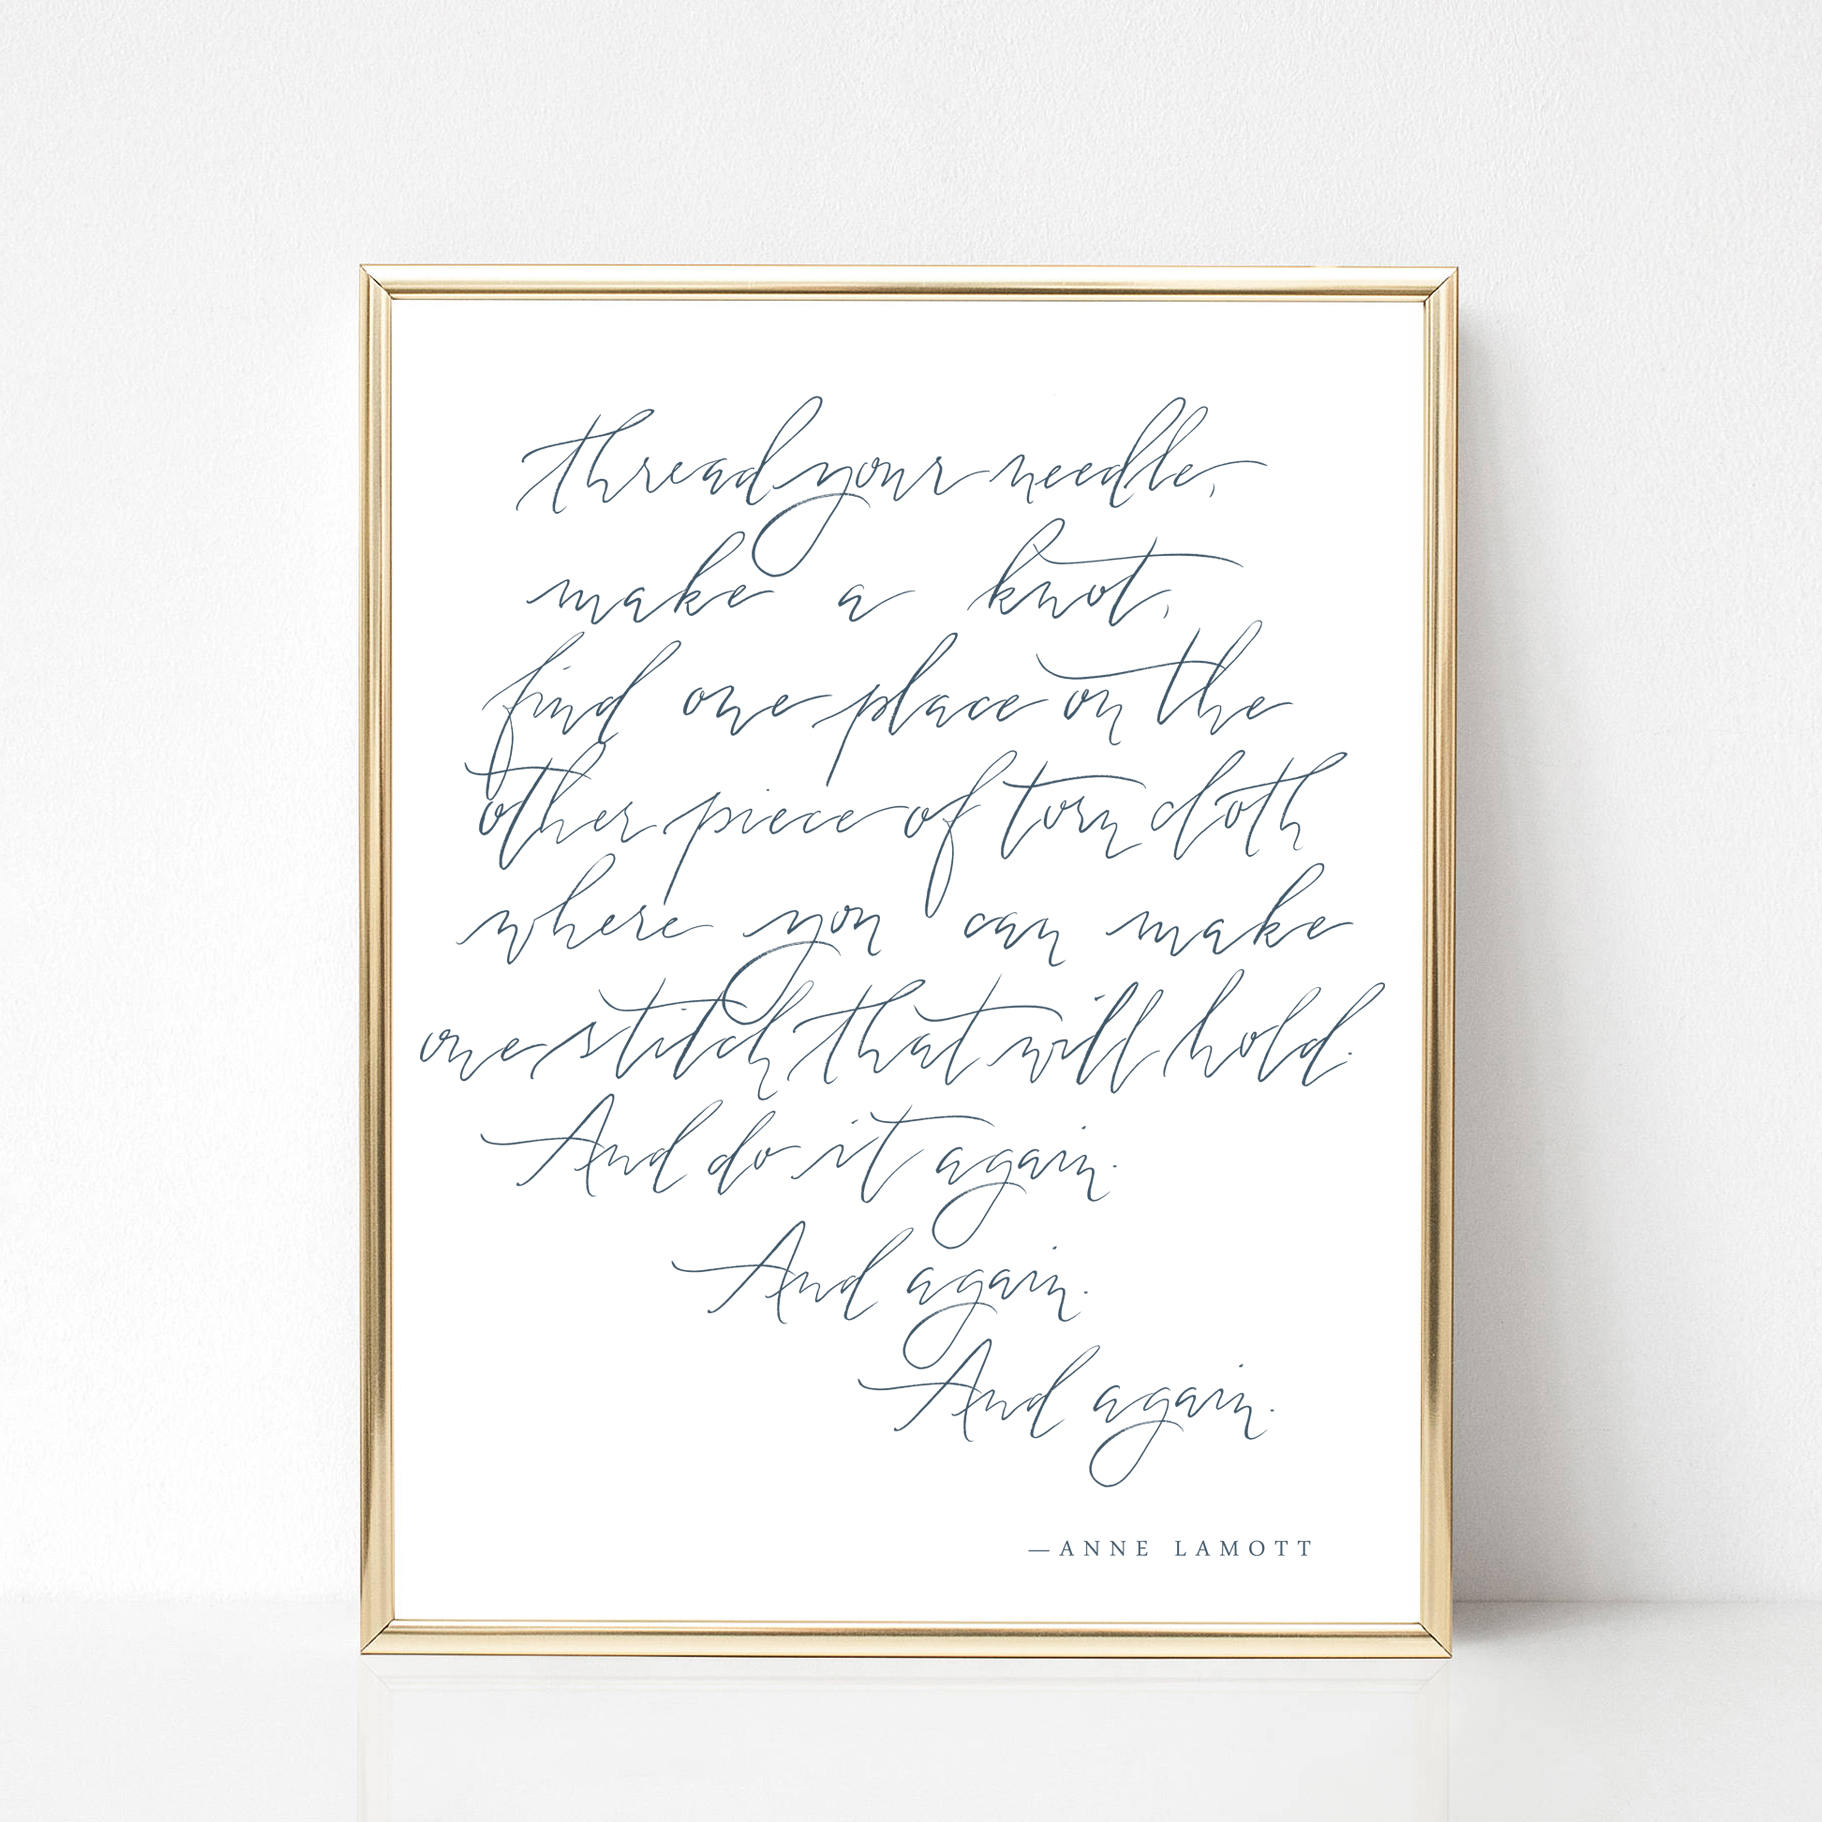 thread your needle,
make a knot,
find one place on the
other piece of torn cloth
where you can make
one stitch that will hold.
And do it again.
And again.
And again.
—ANNE LAMOTT